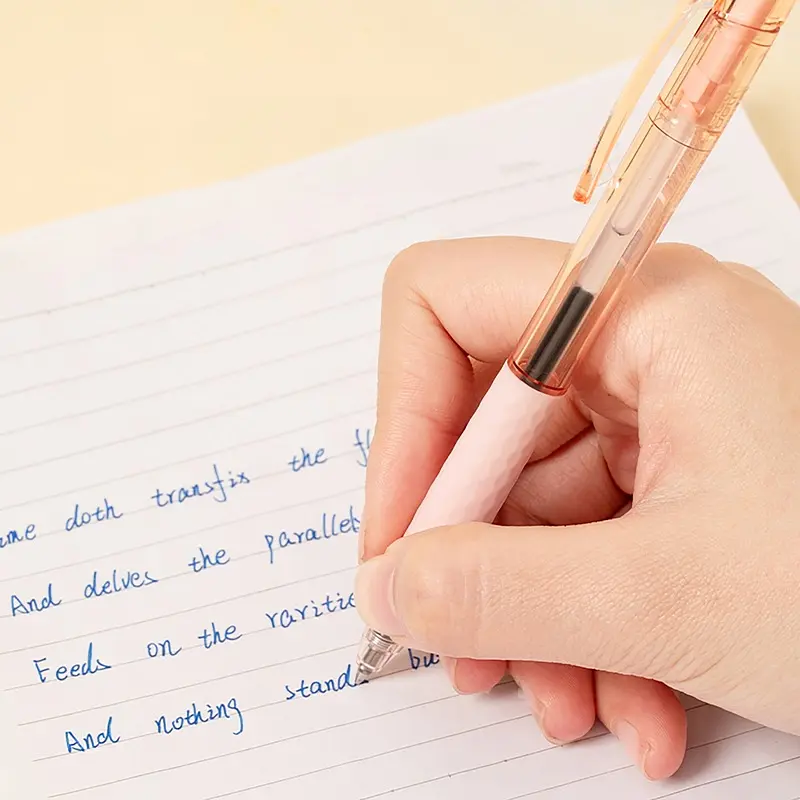 doth transfix the
And delves the parallels
Feeds on the rarities
And nothing stands bu